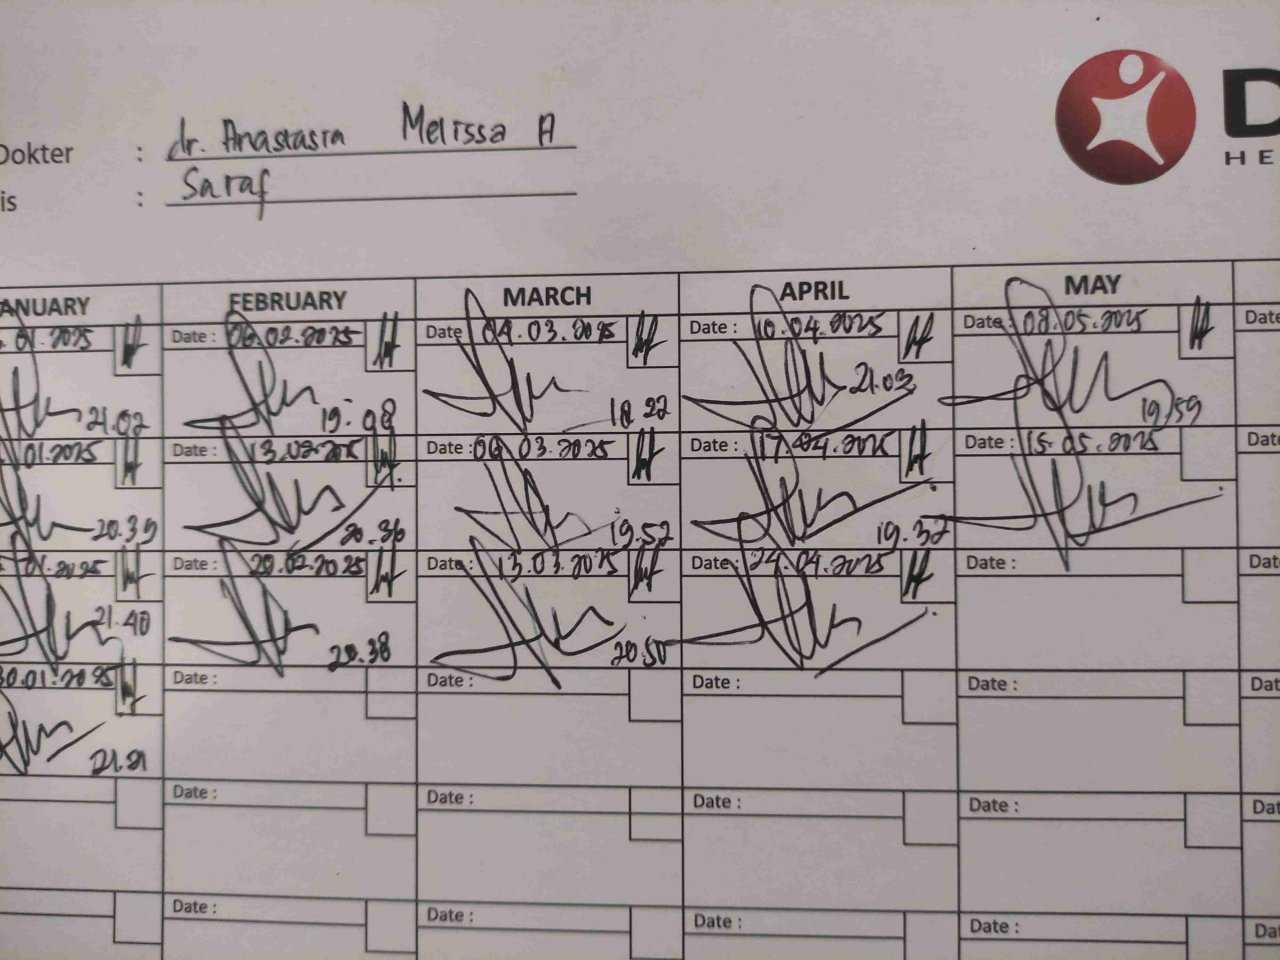 Dokter : dr. Anastasia Melissa A
is : Saraf
D
HE
ANUARY FEBRUARY MARCH APRIL MAY
01.2025 Date : 06.02.2025 Date 04.03.2025 Date : 10.04.2025 Date: 08.05.2025 Date
21.02 19.08 18.22 21.03 19.59
01.2025 Date : 13.02.2025 Date : 06.03.2025 Date : 17.04.2025 Date : 15.05.2025 Dat
20.39 20.36 19.52 19.32
01.2025 Date : 20.02.2025 Date : 13.03.2025 Date : 24.04.2025 Date : Dat
21.40 20.38 20.50
30.01.2025 Date : Date : Date : Date : Dat
21.21
Date : Date : Date : Date : Dat
Date : Date : Date : Date : Dat